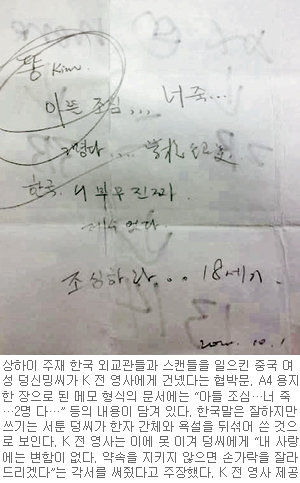 똥 Kim.
이뜬 조심... 너 죽...
2명다....
한국. 너 무무 진짜
재수 없다
조심하라... 18세기.
10. 1
상하이 주재 한국 외교관들과 스캔들을 일으킨 중국 여
성 덩신밍씨가 K 전 영사에게 건넸다는 협박문. A4 용지
한 장으로 된 메모 형식의 문서에는 “아들 조심…너 죽
…2명 다…” 등의 내용이 담겨 있다. 한국말은 잘하지만
쓰기는 서툰 덩씨가 한자 간체와 욕설을 뒤섞어 쓴 것으
로 보인다. K 전 영사는 이에 못 이겨 덩씨에게 “내 사랑
에는 변함이 없다. 약속을 지키지 않으면 손가락을 잘라
드리겠다”는 각서를 써줬다고 주장했다. K 전 영사 제공